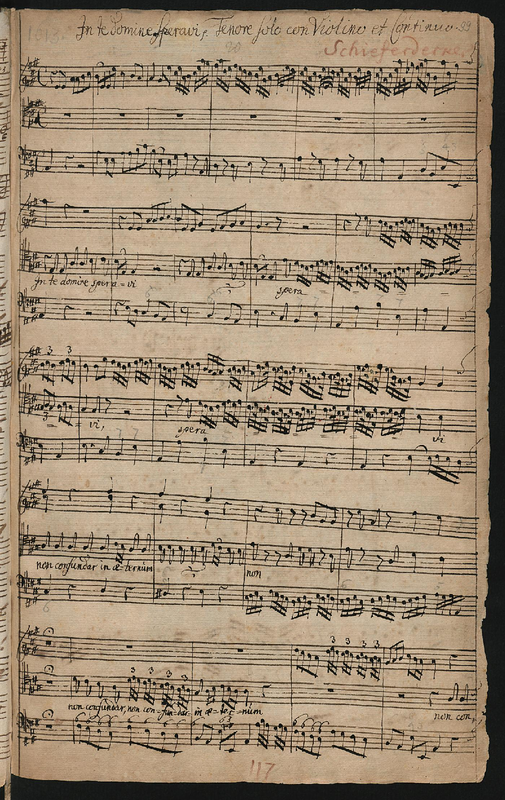 In te domine speravi, Tenore solo con Violino et Continuo. 99
Schieferdecker
3 3
In te domine spera = vi
spera
= vi, spera vi
non confundar in æ-ternum
non
6
3 3 3 3
3 3 3
non confundar, non con-fun-dar in æ-ter-num non con,
117